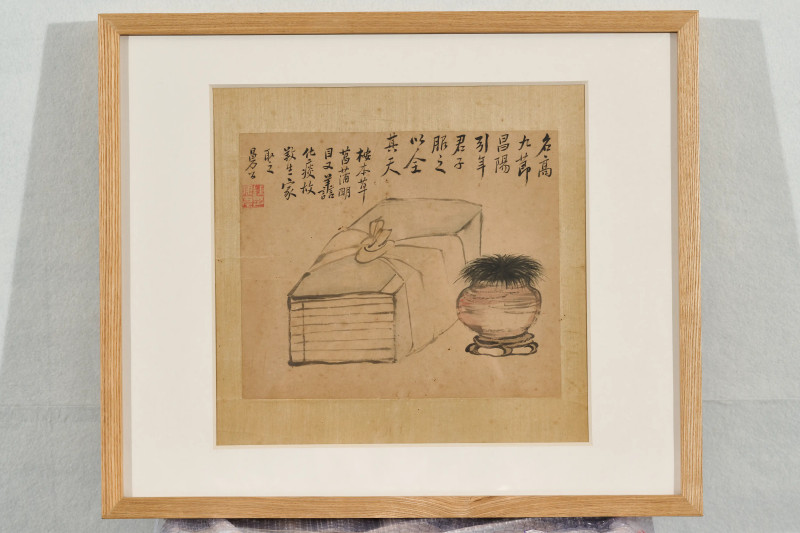 名高
九節
昌陽
引年
君子
服之
以全
其天
按本草
菖蒲明
目又善
化痰故
養生家
取之